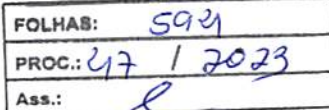 FOLHAS: 5921
PROC.: 47 / 2023
Ass.: